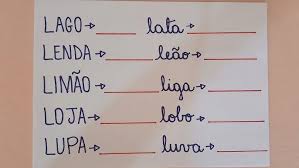 LAGO→____ lata→____
LENDA→____ leão→____
LIMÃO→____ liga→____
LOJA→____ lobo→____
LUPA→____ luva→____